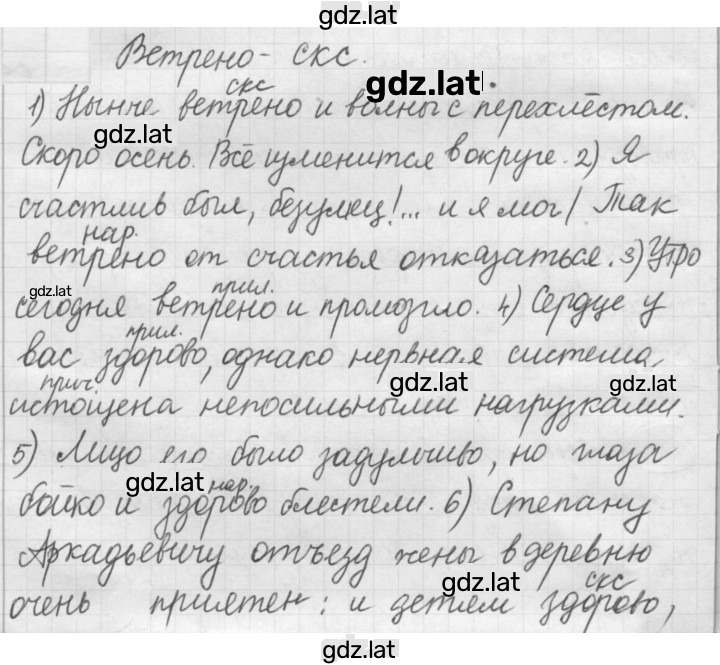 gdz.lat
Ветрено - скс.
gdz.lat
скс
1) Нынче ветрено и волны с перехлёстом.
gdz.lat
Скоро осень. Всё изменится в округе. 2) Я
счастлив был, безумец!... и я мог / Так
нар.
ветрено от счастья отказаться. 3) Утро
gdz.lat
прил.
сегодня ветрено и промозгло. 4) Сердце у
прил.
вас здорово, однако нервная система
прич. gdz.lat gdz.lat
истощена непосильными нагрузками.
5) Лицо его было задумчиво, но глаза
gdz.lat нар.
бойко и здорово блестели. 6) Степану
Аркадьевичу отъезд жены в деревню
gdz.lat скс
очень приятен: и детям здорово,
gdz.lat